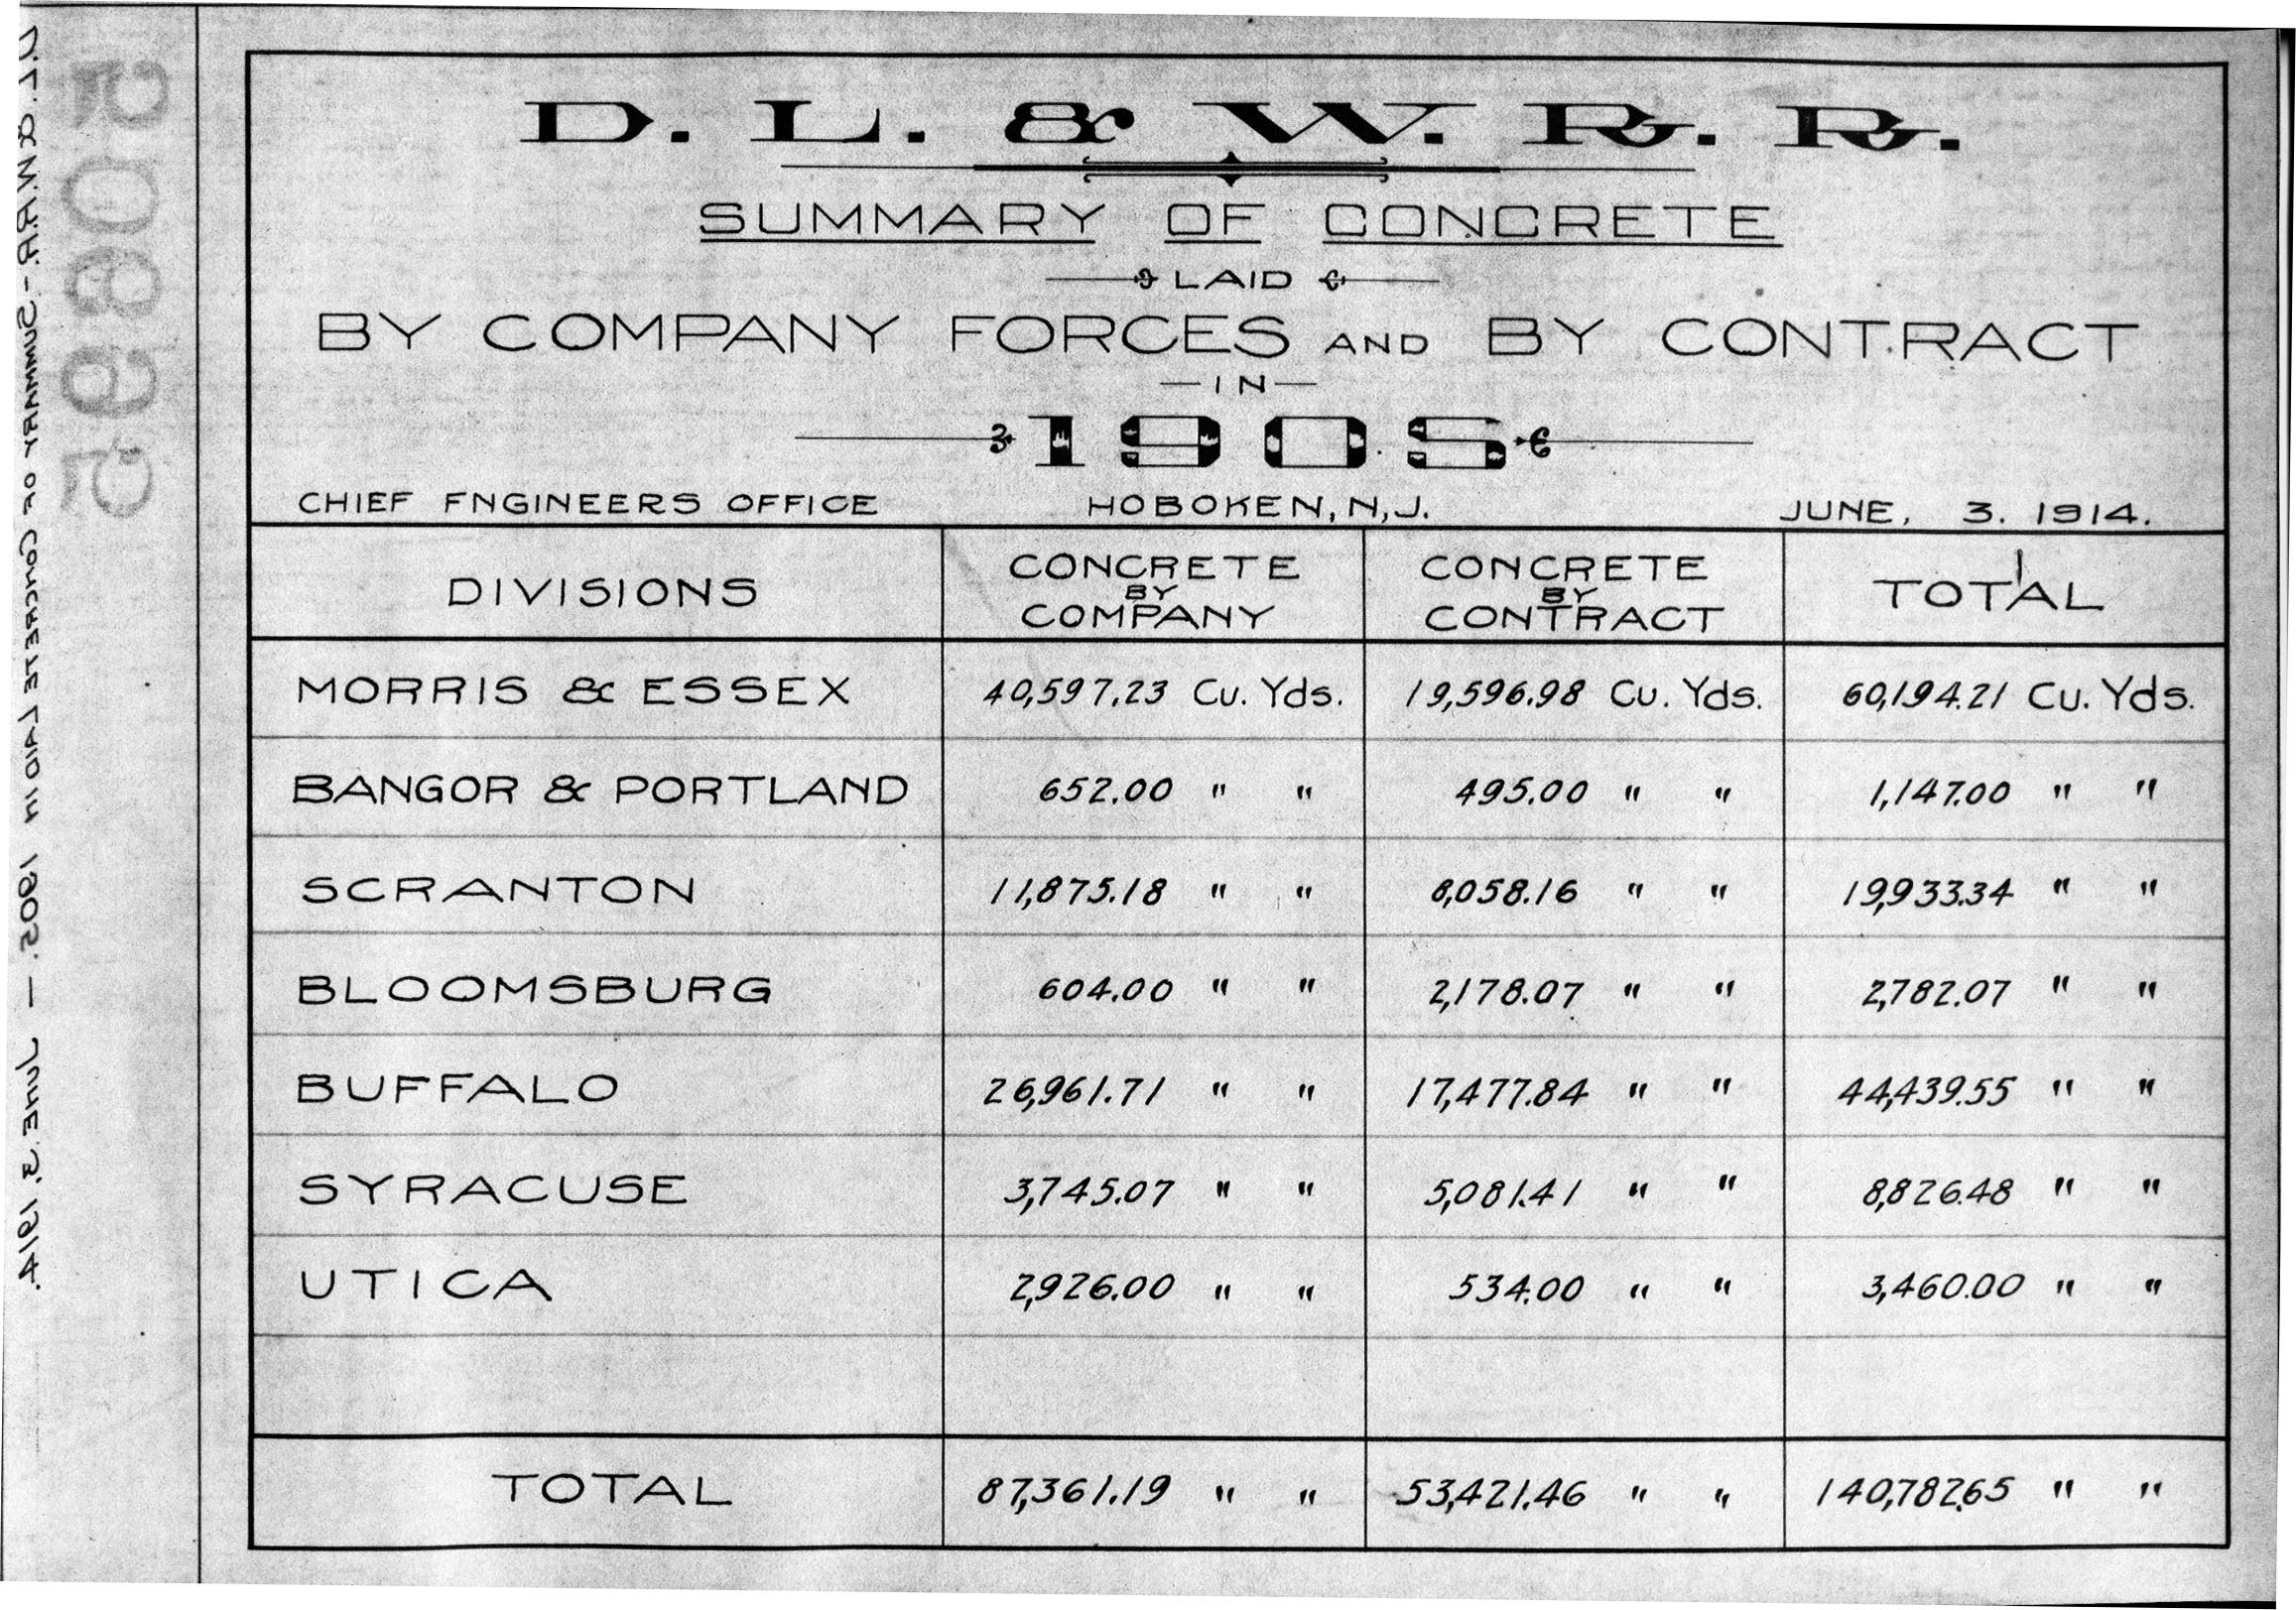 D. L. & W. R. R.
SUMMARY OF CONCRETE
LAID
BY COMPANY FORCES AND BY CONTRACT
—IN—
1905
CHIEF FNGINEERS OFFICE HOBOKEN, N,J. JUNE, 3. 1914.
DIVISIONS CONCRETE BY COMPANY CONCRETE BY CONTRACT TOTAL
MORRIS & ESSEX 40,597.23 Cu. Yds. 19,596.98 Cu. Yds. 60,194.21 Cu. Yds.
BANGOR & PORTLAND 652.00 " " 495.00 " " 1,147.00 " "
SCRANTON 11,875.18 " " 8,058.16 " " 19,933.34 " "
BLOOMSBURG 604.00 " " 2,178.07 " " 2,782.07 " "
BUFFALO 26,961.71 " " 17,477.84 " " 44,439.55 " "
SYRACUSE 3,745.07 " " 5,081.41 " " 8,826.48 " "
UTICA 2,926.00 " " 534.00 " " 3,460.00 " "
TOTAL 87,361.19 " " 53,421.46 " " 140,782.65 " "
D.L. & W.R.R. - SUMMARY OF CONCRETE LAID IN 1905. — JUNE. 3. 1914.